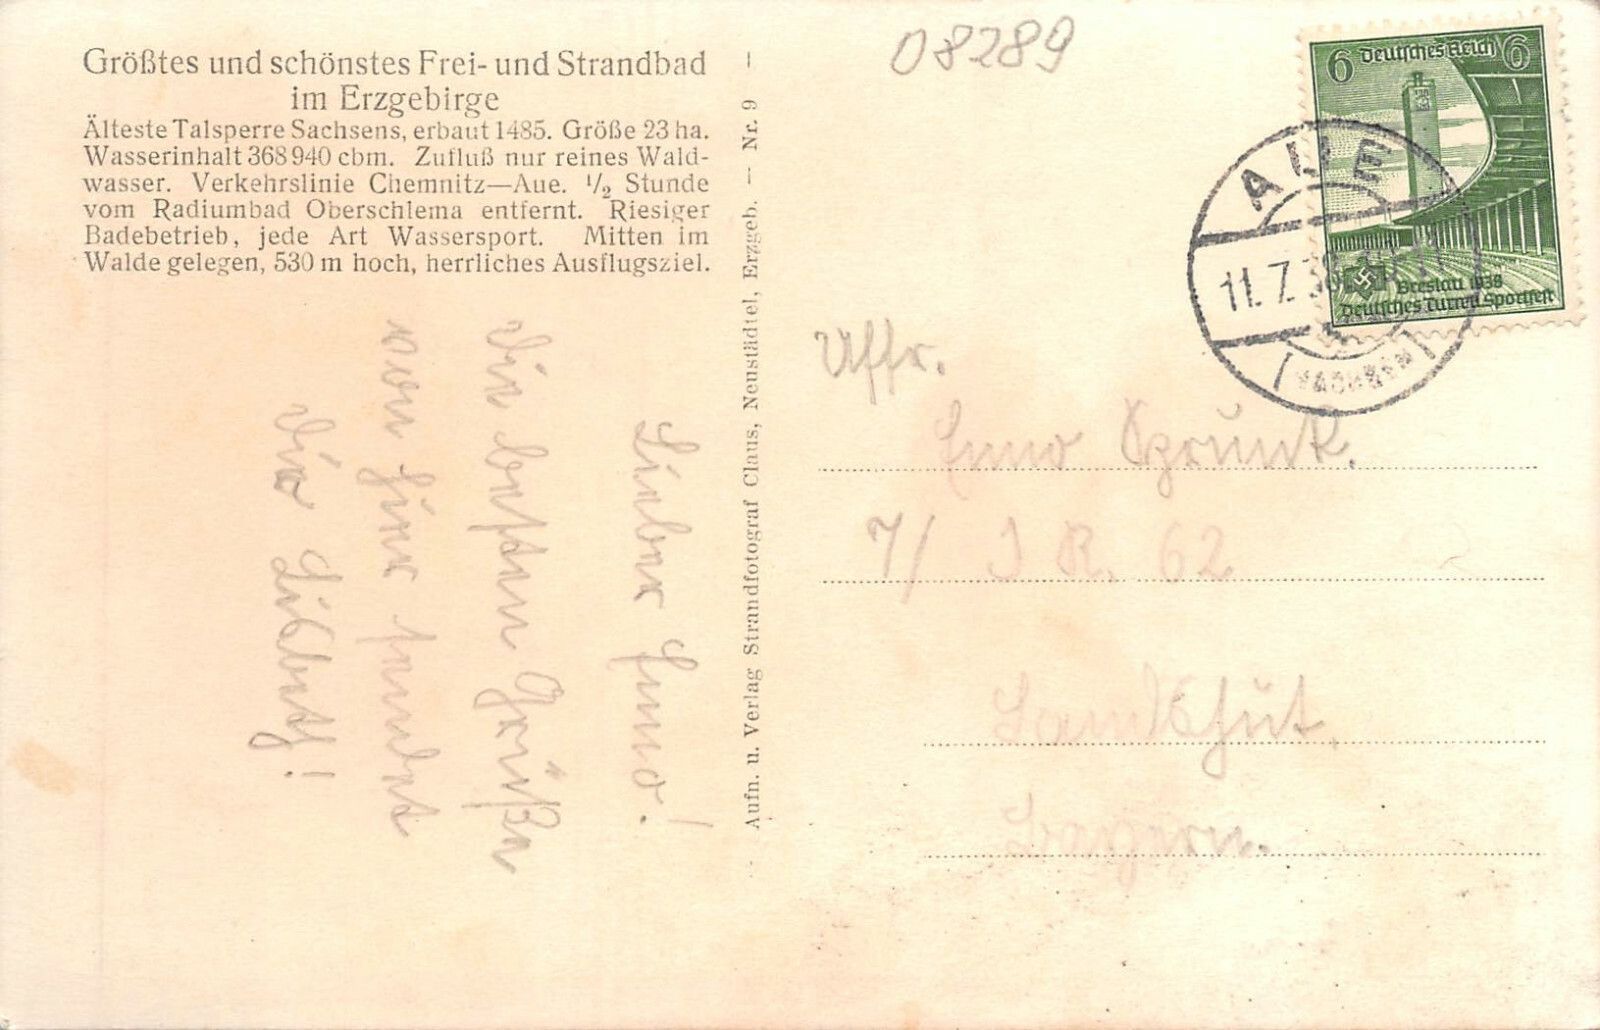 08289
Größtes und schönstes Frei- und Strandbad
im Erzgebirge
Älteste Talsperre Sachsens, erbaut 1485. Größe 23 ha.
Wasserinhalt 368 940 cbm. Zufluß nur reines Wald-
wasser. Verkehrslinie Chemnitz—Aue. 1/2 Stunde
vom Radiumbad Oberschlema entfernt. Riesiger
Badebetrieb, jede Art Wassersport. Mitten im
Walde gelegen, 530 m hoch, herrliches Ausflugsziel.
Lieber Enno!
Die besten Grüße
von hier sendet
Dir
Aufn. u. Verlag Strandfotograf Claus, Neustädtel, Erzgeb. — Nr. 9
6 Deutsches Reich 6
Breslau 1938
Deutsches Turn u Sportfest
AUE
11.7.38
(SACHSEN)
Uffr.
Enno
7/ I R. 62
Landshut,
Bayern.